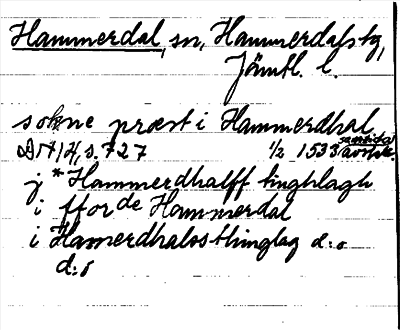 Hammerdal, sn, Hammerdals tg,
Jämtl. l.
sokne præst i Hammerdhal
DN 14, s. 727 1/2 1533 samtida avskr.
j * Hammerdhalff tinghlagh
i ffor de Hammerdal
i Hamerdhalssthinglag d:o
d:o